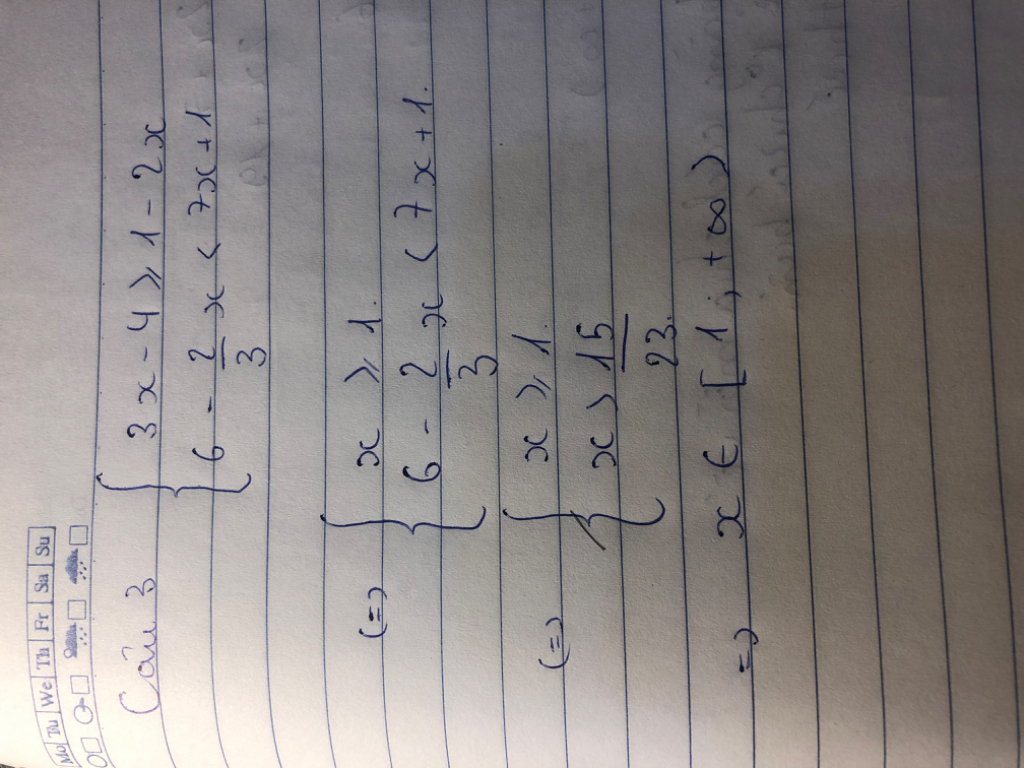 Mo Tu We Th Fr Sa Su
Câu 3 { 3x - 4 ⩾ 1 - 2x
6 - 2/3 x < 7x + 1
(=) { x ⩾ 1.
6 - 2/3 x < 7x + 1.
(=) { x ⩾ 1.
x > 15/23.
=) x ∈ [1; +∞)